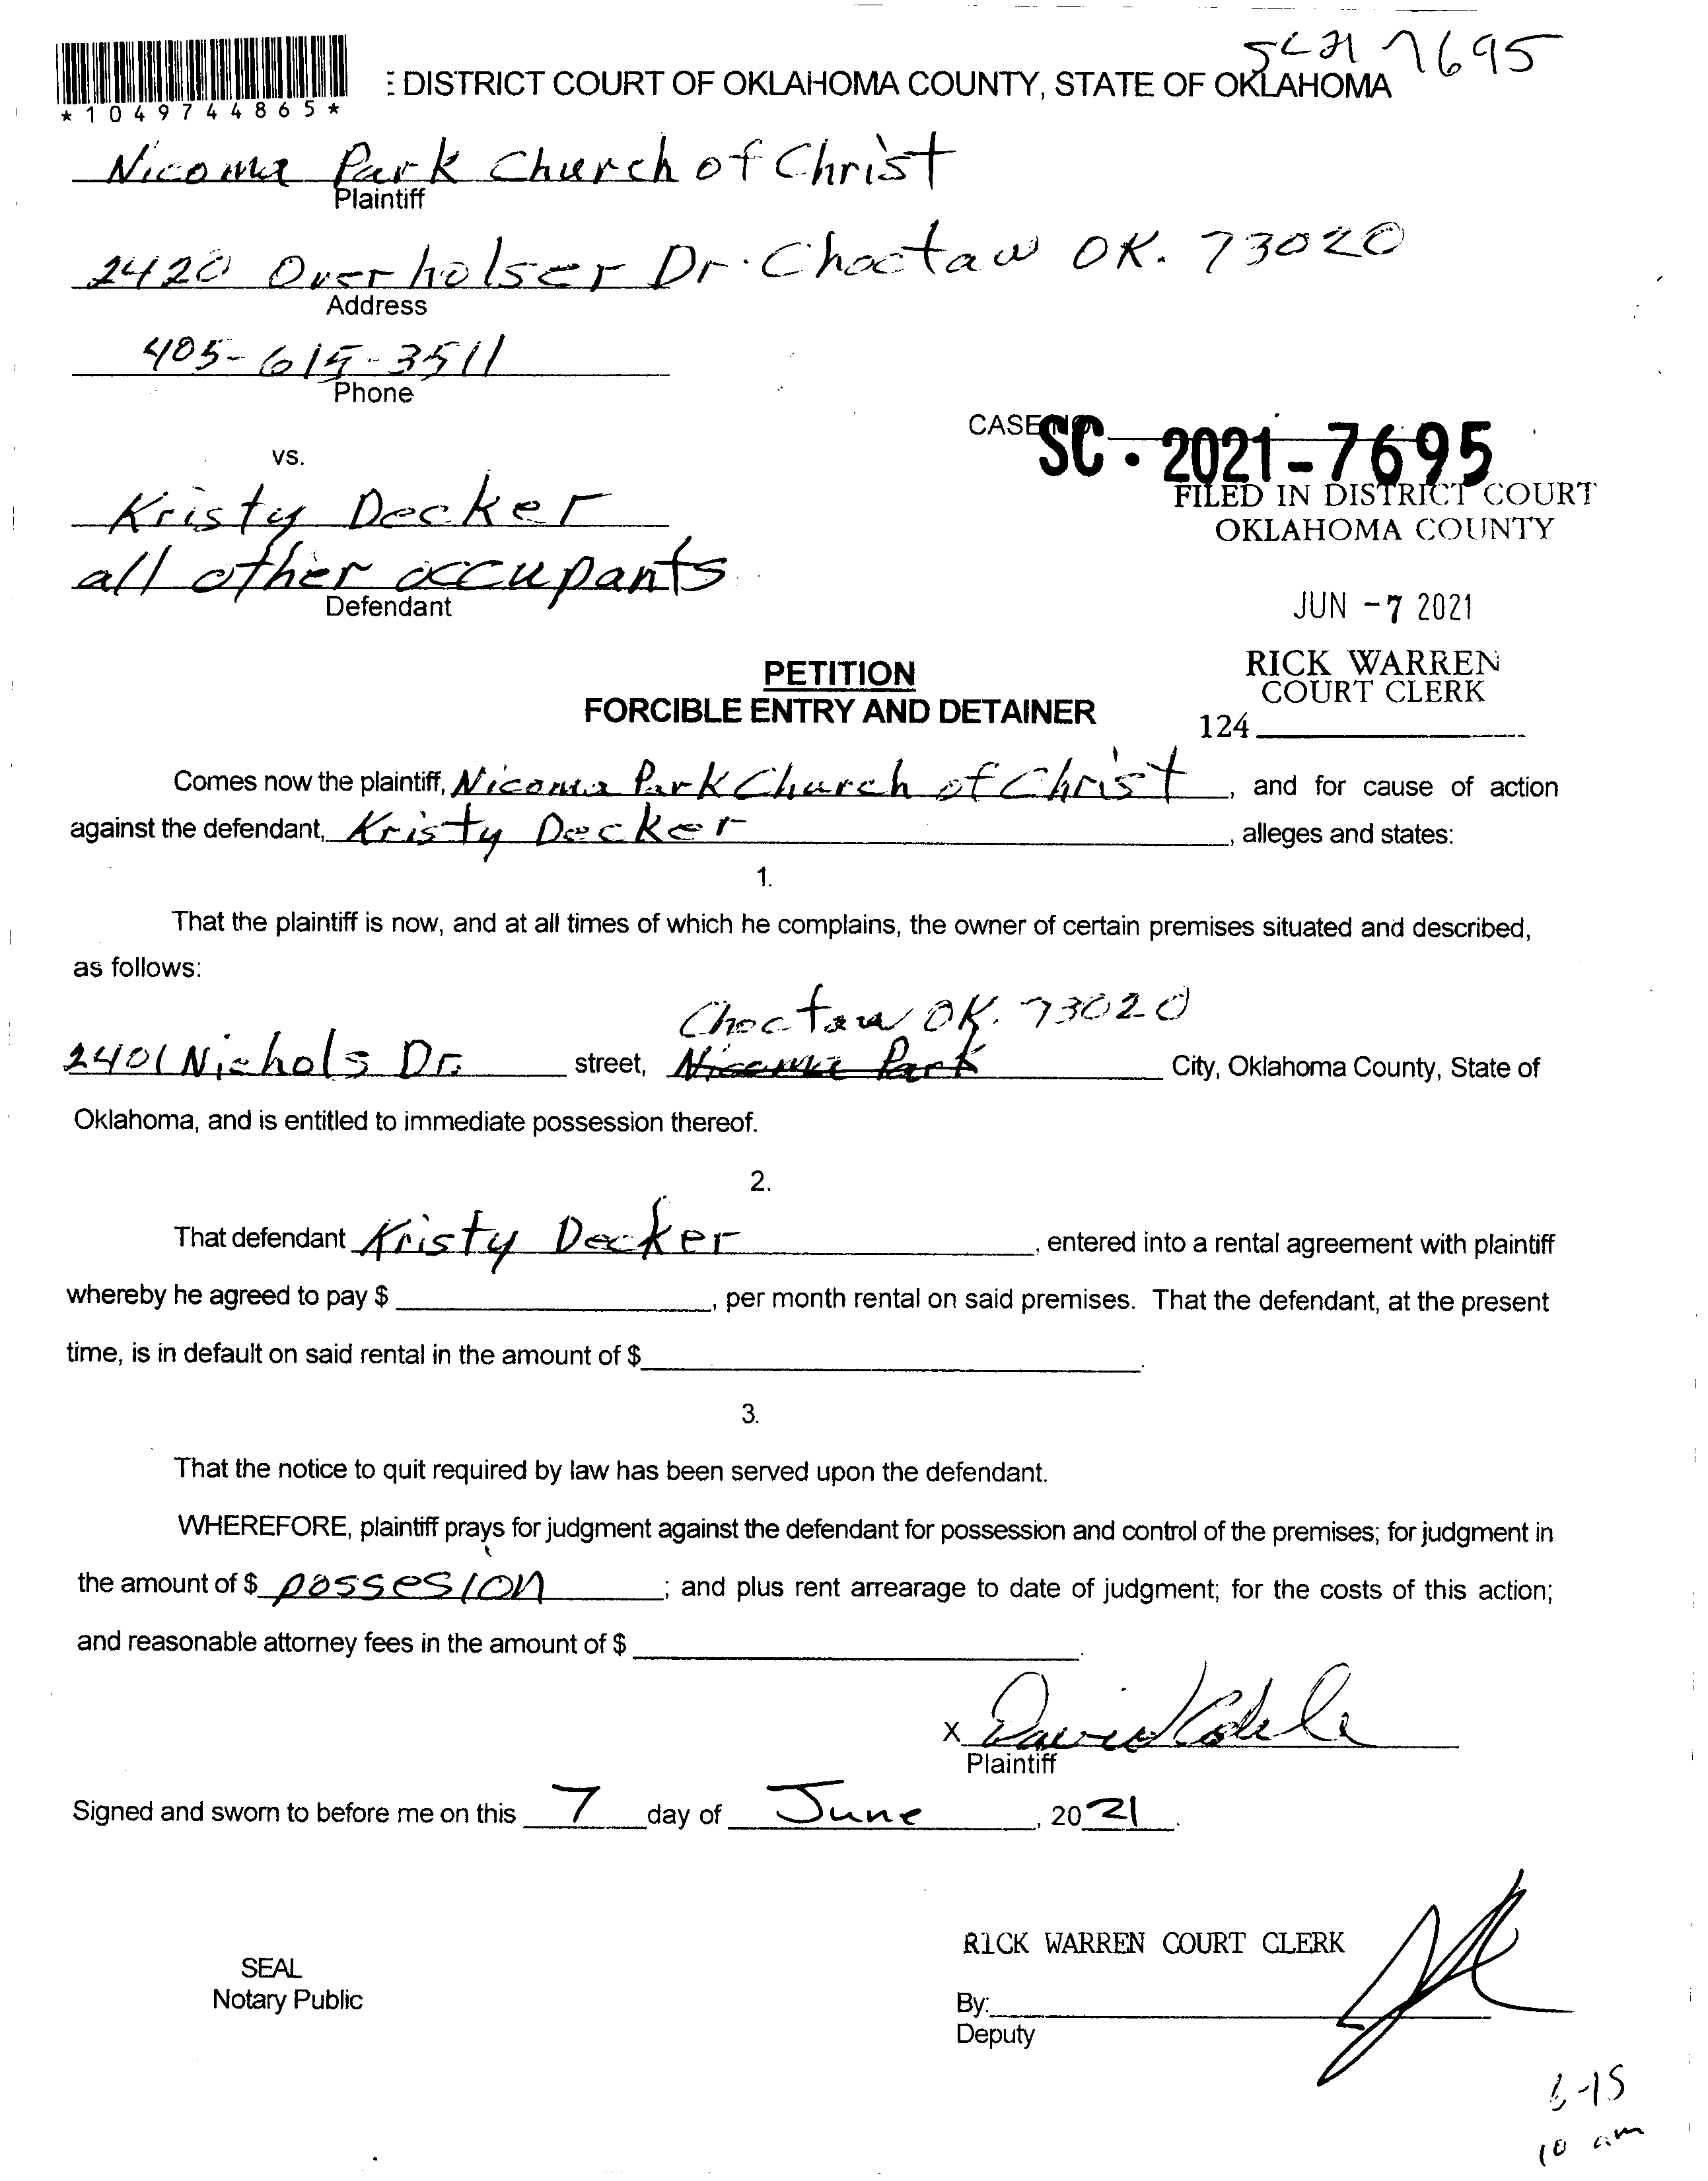 SC21 7695
*1049744865*
: DISTRICT COURT OF OKLAHOMA COUNTY, STATE OF OKLAHOMA
Nicoma Park Church of Christ
Plaintiff
2420 Overholser Dr. Choctaw OK. 73020
Address
405-615-3511
Phone
CASE NO.
SC - 2021-7695
vs.
FILED IN DISTRICT COURT
OKLAHOMA COUNTY
Kristy Decker
all other occupants
Defendant
JUN -7 2021
RICK WARREN
COURT CLERK
124
PETITION
FORCIBLE ENTRY AND DETAINER
Comes now the plaintiff, Nicoma Park Church of Christ, and for cause of action
against the defendant, Kristy Decker, alleges and states:
1.
That the plaintiff is now, and at all times of which he complains, the owner of certain premises situated and described,
as follows:
Choctaw OK. 73020
2401 Nichols Dr. street, Nicoma Park City, Oklahoma County, State of
Oklahoma, and is entitled to immediate possession thereof.
2.
That defendant Kristy Decker, entered into a rental agreement with plaintiff
whereby he agreed to pay $ , per month rental on said premises. That the defendant, at the present
time, is in default on said rental in the amount of $ .
3.
That the notice to quit required by law has been served upon the defendant.
WHEREFORE, plaintiff prays for judgment against the defendant for possession and control of the premises; for judgment in
the amount of $ possesion ; and plus rent arrearage to date of judgment; for the costs of this action;
and reasonable attorney fees in the amount of $ .
X David
Plaintiff
Signed and sworn to before me on this 7 day of June, 2021.
RICK WARREN COURT CLERK
SEAL
Notary Public
By:
Deputy
6-15
10 am